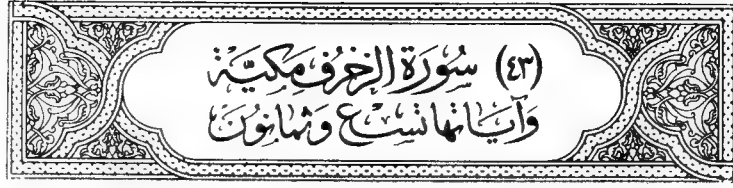 (٤٣) سُورَة الزخرُفِ مَكيّة
وَآيَاتهَا تسْع وَثمانونَ